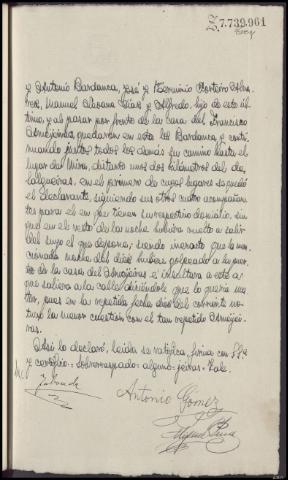 7.739.961
y Antonio Bardanca, José y Herminio
Manuel y Alfredo, hijo de este úl-
timo, y al pasar por frente de la casa del Francisco
quedaron en esta los Bardanca y conti-
nuando juntos todos los demás su camino hasta el
lugar de distante unos dos kilómetros del de
en el primero de cuyos lugares se quedó
el declarante, siguiendo sus otros cuatro acompañan-
tes para el en que tienen su respectivo domicilio, sin
que en el resto de la noche hubiera vuelto a salir
del suyo el que depone; siendo inexacto que la men-
cionada noche del diez hubiera golpeado a la puer-
ta de la casa del e insultara a este a
que saliera a la calle diciéndole que lo quería ma-
tar, pues en la repetida fecha diez del corriente no
tuvo la menor cuestión con el tan repetido
Así lo declaró, leída se ratifica, firma con SSª
y certifico = Sobrerraspado = alguno = Vale.
Antonio Gomez